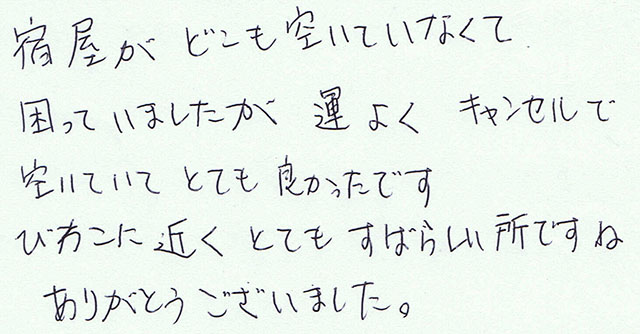 宿屋が どこも空いていなくて
困っていましたが 運よく キャンセルで
空いていて とても 良かったです
びわこに 近く とても すばらしい所ですね
ありがとうございました。